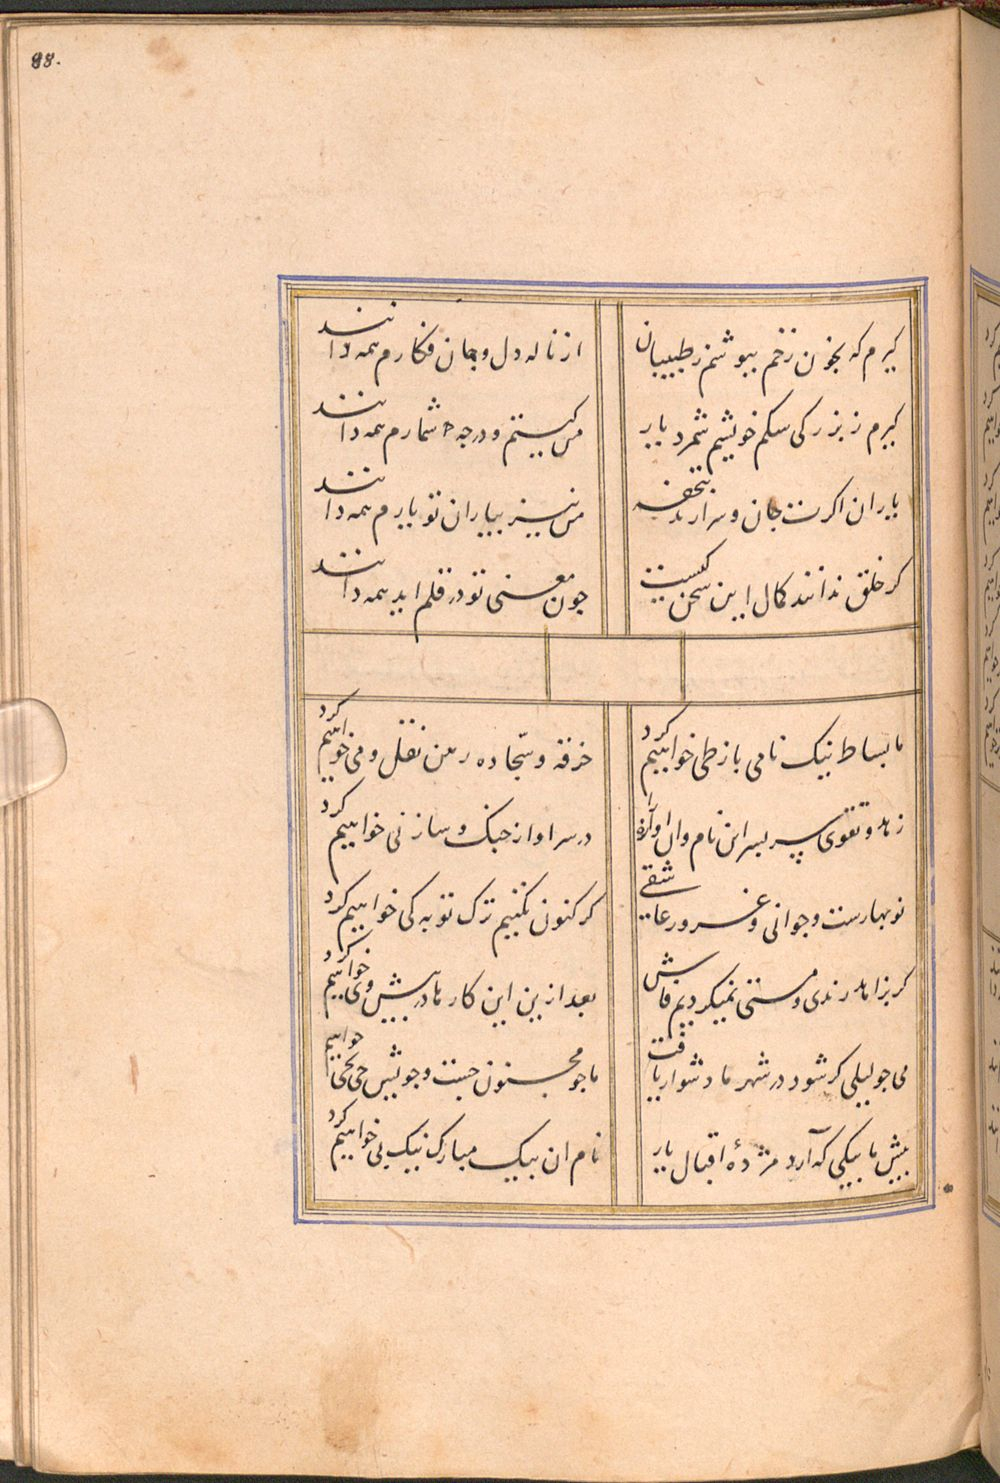 88.
کیرم که بخون زخم بپوشم ز طبیبان
از ناله دل و جان فکارم همه دانند
کیرم ز بزرکی سکم خویشم شمرد یار
من کیستم و در چه شمارم همه دانند
یاران اکرت جان و سر ارند بتحفه
من نیز بیاران تو یارم همه دانند
کر خلق ندانند کمال این سخن کیست
چون معنی تو در قلم اید همه دانند
ما بساط نیک نامی باز طی خواهیم کرد
خرقه و سجاده رهن نقل و می خواهیم کرد
زهد و تقوی سر بسر این نام وان اوازه
در سر اواز چنک و ساز نی خواهیم کرد
نوبهارست و جوانی و غرور عاشقی
کر کنون نکنیم ترک توبه کی خواهیم کرد
کر بزاهد رندی و مستی نمیکردیم فاش
بعد ازین این کارها در پیش وی خواهیم کرد
می چو لیلی کر شود در شهر ما دشوار یافت
ما چو مجنون جست و جویش حی بحی خواهیم
پیش ما پیکی که آرد مژدهٔ اقبال یار
نام ان پیک مبارک نیک پی خواهیم کرد